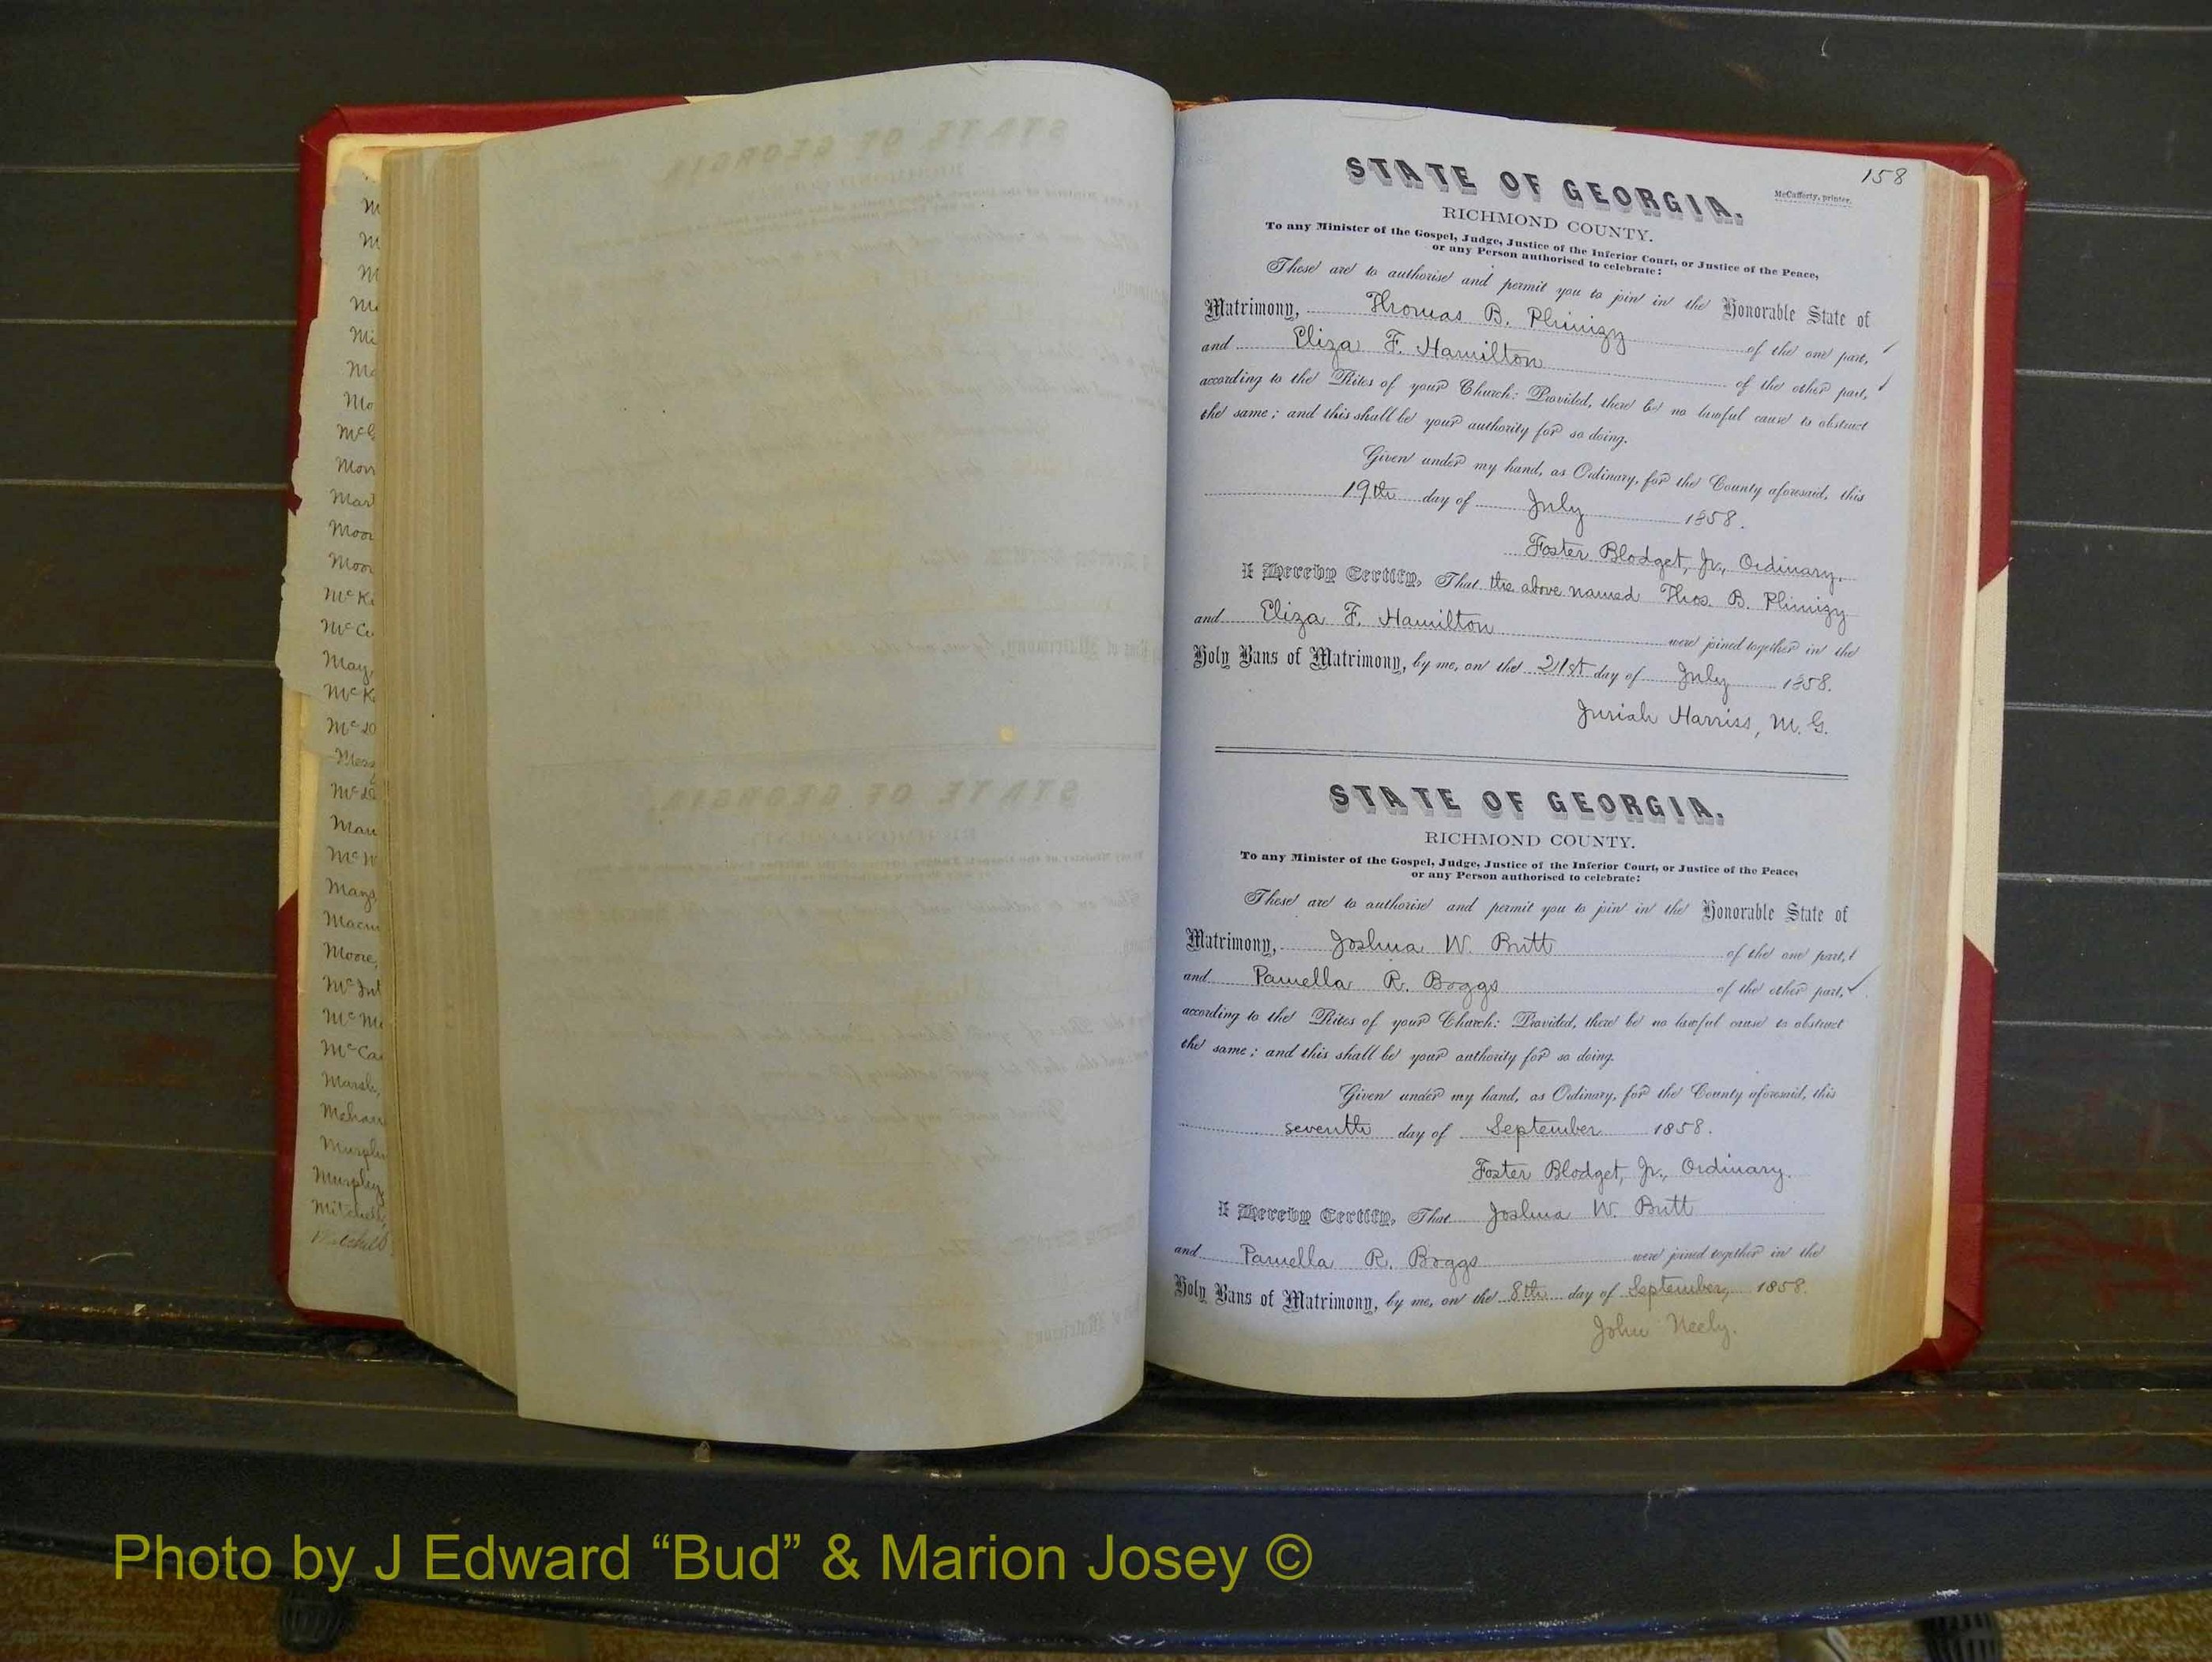 158
STATE OF GEORGIA.
McCafferty, printer.
RICHMOND COUNTY.
To any Minister of the Gospel, Judge, Justice of the Inferior Court, or Justice of the Peace,
or any Person authorised to celebrate:
These are to authorise and permit you to join in the Honorable State of
Matrimony, Thomas B. Phinizy of the one part,
and Eliza F. Hamilton of the other part,
according to the Rites of your Church: Provided, there be no lawful cause to obstruct
the same; and this shall be your authority for so doing.
Given under my hand, as Ordinary, for the County aforesaid, this
19th day of July 1858.
Foster Blodget, Jr., Ordinary.
I Hereby Certify, That the above named Thos. B. Phinizy
and Eliza F. Hamilton were joined together in the
Holy Bans of Matrimony, by me, on the 21st day of July 1858.
Juriah Harriss, M. G.
STATE OF GEORGIA.
RICHMOND COUNTY.
To any Minister of the Gospel, Judge, Justice of the Inferior Court, or Justice of the Peace,
or any Person authorised to celebrate:
These are to authorise and permit you to join in the Honorable State of
Matrimony, Joshua W. Britt of the one part,
and Pamella R. Boggs of the other part,
according to the Rites of your Church: Provided, there be no lawful cause to obstruct
the same; and this shall be your authority for so doing.
Given under my hand, as Ordinary, for the County aforesaid, this
seventh day of September 1858.
Foster Blodget, Jr., Ordinary.
I Hereby Certify, That Joshua W. Britt
and Pamella R. Boggs were joined together in the
Holy Bans of Matrimony, by me, on the 8th day of September, 1858.
John Neely.
Photo by J Edward “Bud” & Marion Josey ©